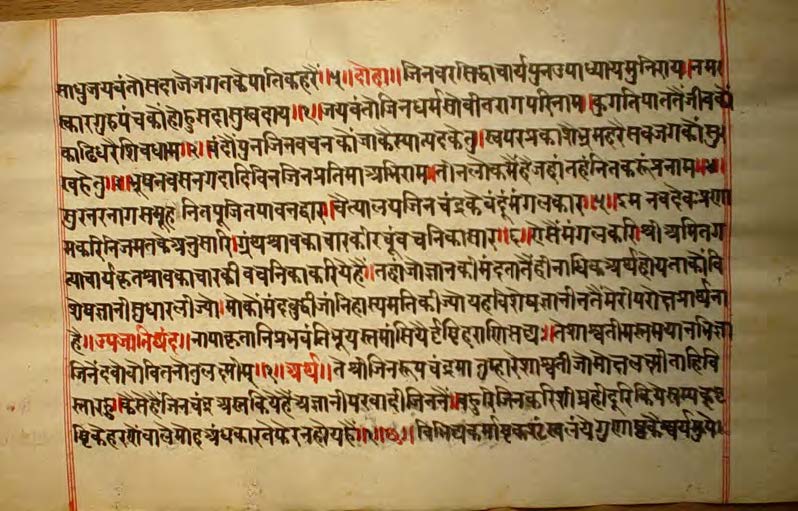 साधुजयवंतो सदा जे जगतके पातिक हरैं ॥५॥ दोहा ॥ जिनवर सिद्धाचार्य पुन उपाध्याय मुनिराय । नम
स्कार गुरु पंचकौं होहु सदा सुखदाय ॥१॥ जयवंतो जिनधर्म सो वीतराग परिनाम । कुगति पाततैं जीवकौं
काढि धरै शिवधाम ॥२॥ वंदौं पुन जिनवचनकौं जाके स्यात्पद केतु । स्वपर प्रकाशै भ्रम हरै सब जगकौं सु
खहेतु ॥३॥ भूषन वसन गदादि विन जिन प्रतिमा अभिराम । तीन लोकमैं है जहां तहं नित करूं प्रनाम ॥४॥
सुर नर नाग समूह नित पूजित पावन द्वार । चैत्यालय जिनचंद्रके वंदूं मंगलकार ॥५॥ इम नवदेव प्रणा
म करि निज मतके अनुसारि । ग्रंथ श्रावकाचारकी रचूं वचनिका सार ॥६॥ ऐसैं मंगल करि श्री अमितग
त्याचार्यकृत श्रावकाचारकी वचनिका करिये है । तहां जो ज्ञानकी मंदतातैं हीनाधिक अर्थ होय ताकौं वि
शेष ज्ञानी सुधार लीज्यो । मोकौं मंदबुद्धी जांनि हास्य मति कीज्यो यह विशेष ज्ञानीनतैं मेरी परोक्ष प्रार्थना
है ॥ उपजाति छंद ॥ नापाकृतानि प्रभवंति भूयस्तमांसि यैर्दृष्टिहराणि सद्यः । ते शाश्वतीमस्तमयानभिज्ञा
जिनेंदवो वो वितनोतु लक्ष्मीम् ॥१॥ अर्थ ॥ ते श्री जिनरूप चंद्रमा तुम्हारे शाश्वती जो मोक्ष लक्ष्मी ताहि वि
स्तारहु । कैसे है जिनचंद्र अस्त किये है अज्ञानी परवादी जिननैं । बहुरि जिन करि शीघ्रही दूरि किये सम्यक्दृ
ष्टिके हरणेंवाले मोह अंधकार ते फेर न होय हैं ॥१॥ विभिद्य कर्माष्टक शृंखलां ये गुणाष्टकैश्वर्यमुपे